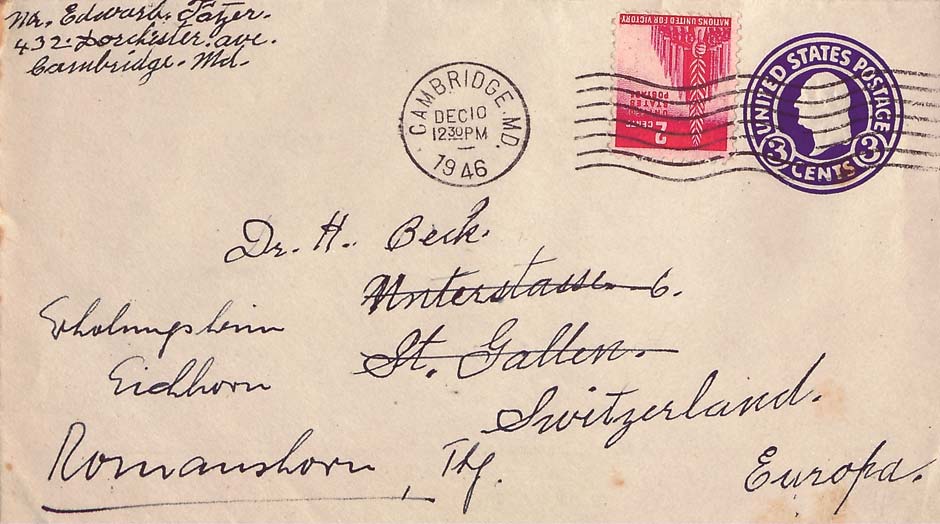 Mr. Edward. Tatzer.
432. Dorchester. ave.
Cambridge. Md.
CAMBRIDGE. MD.
DEC 10
12 30 PM
1946
NATIONS UNITED FOR VICTORY
UNITED
STATES
POSTAGE
2 CENTS
UNITED STATES POSTAGE
3 CENTS 3
Dr. H. Beck.
Unterstasse 6.
St. Gallen.
Switzerland.
Europa.
Erholungsheim
Eichhorn
Romanshorn, Thg.